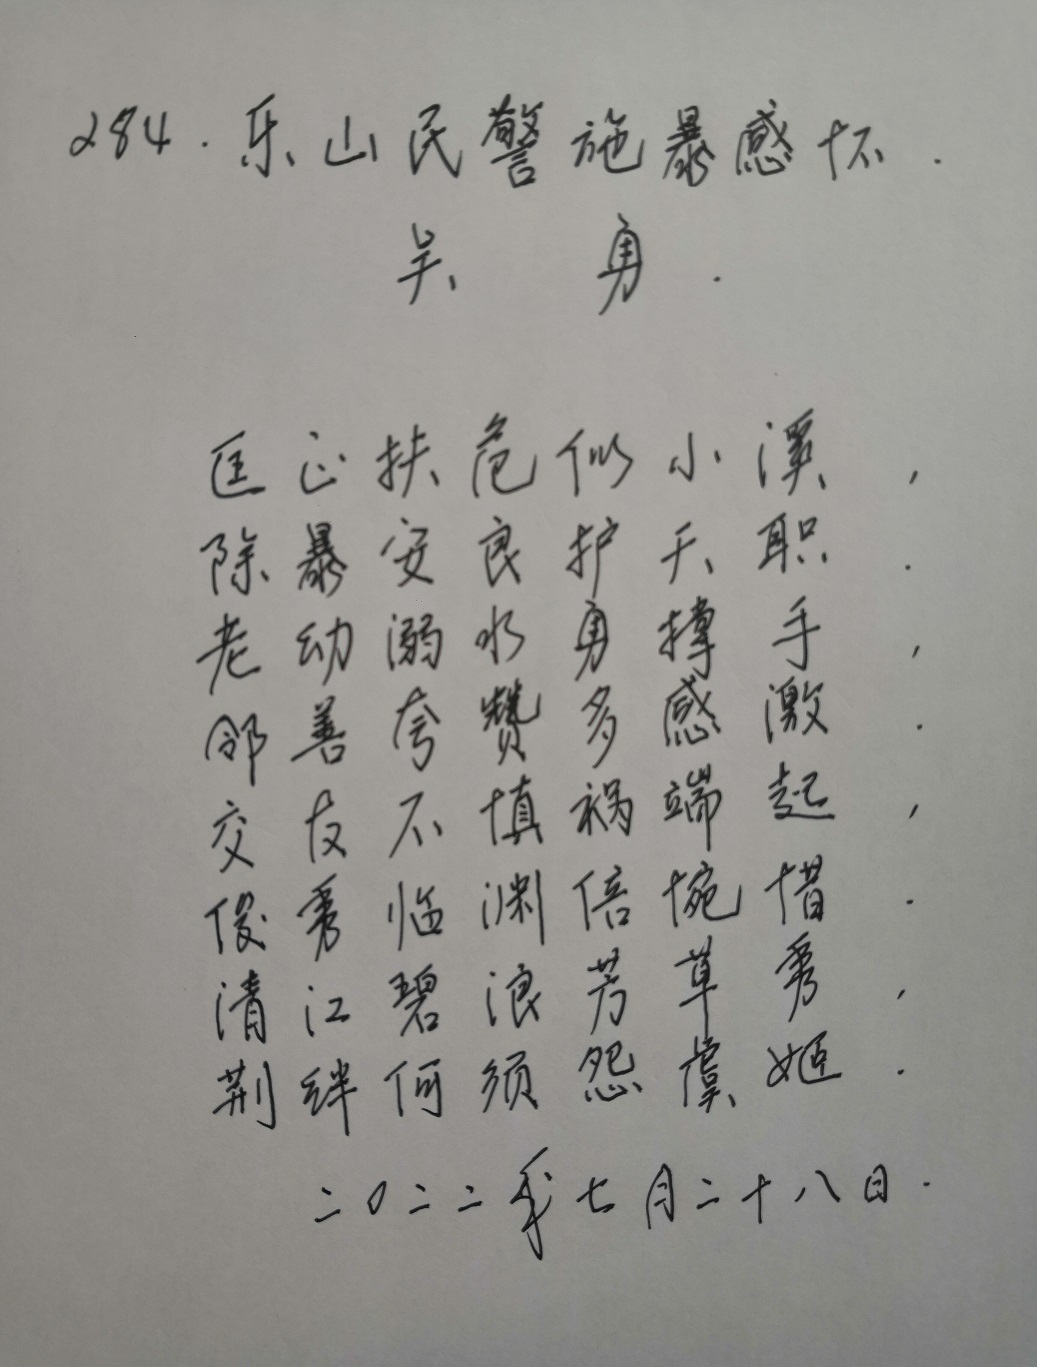 284.乐山民警施暴感怀.
吴 勇.
匡正扶危似小溪,
除暴安良护天职.
老幼溺水勇撑手,
邻善夸赞多感激.
交友不慎祸端起,
俊秀临渊倍惋惜.
清江碧浪芳草秀,
荆绊何须怨虞姬.
二〇二二年七月二十八日.